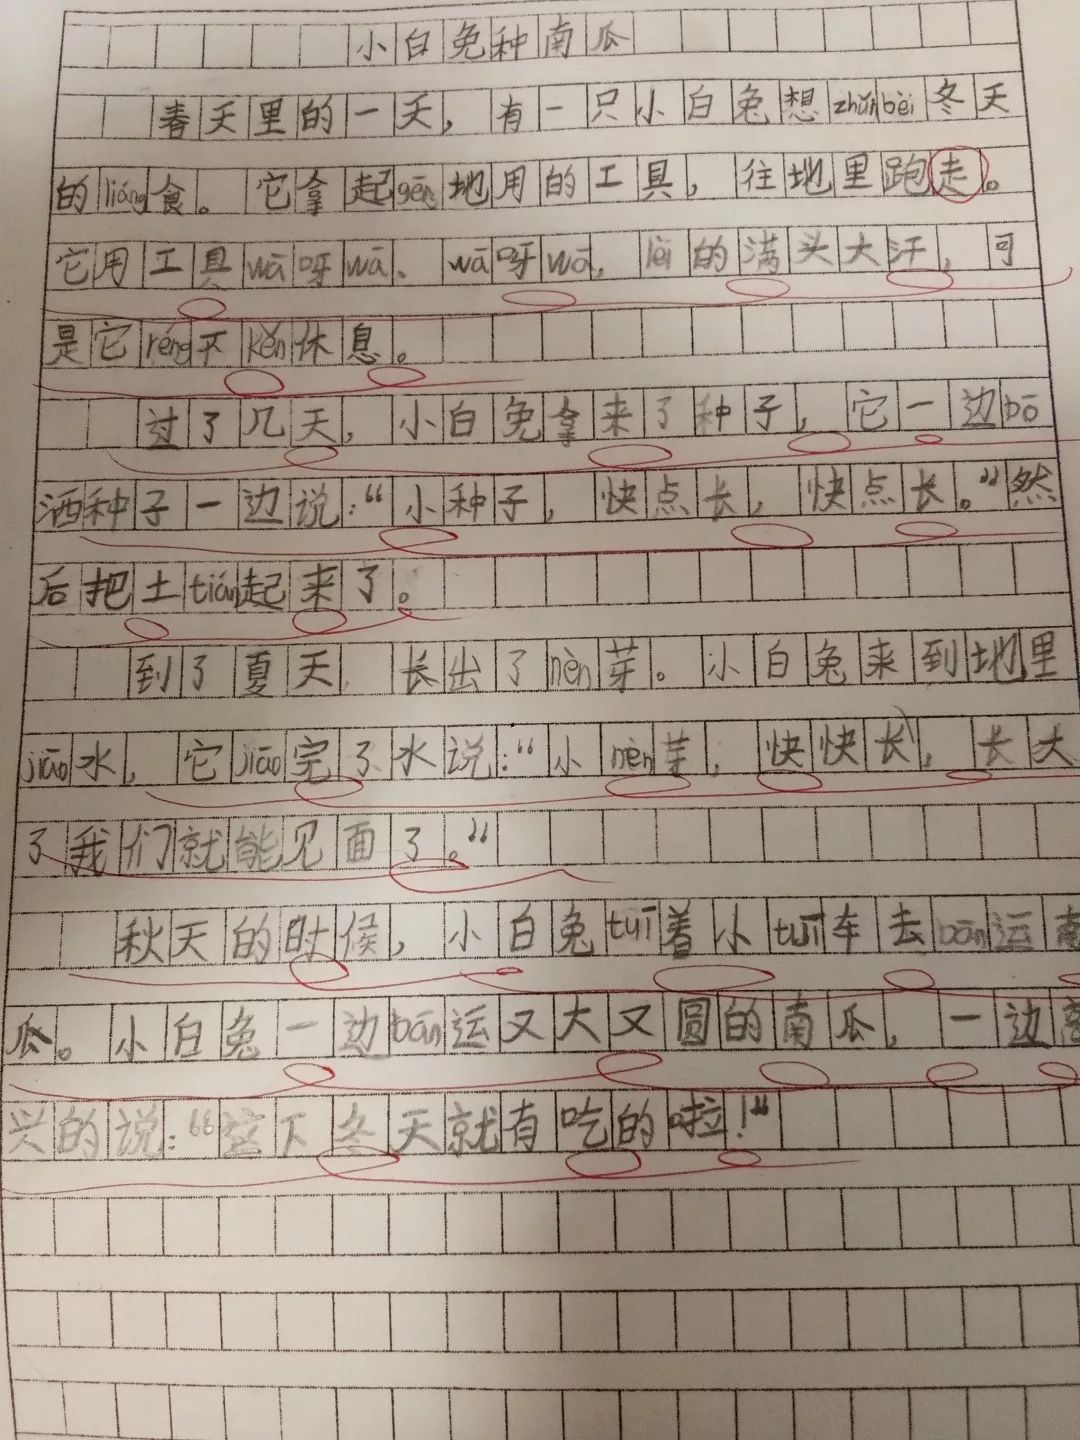 小白兔种南瓜
春天里的一天，有一只小白兔想zhǔnbèi冬天
的liáng食。它拿起gēng地用的工具，往地里跑走。
它用工具wā呀wā、wā呀wā，lèi的满头大汗，可
是它réng不kěn休息。
过了几天，小白兔拿来了种子，它一边bō
洒种子一边说：“小种子，快点长，快点长。”然
后把土tián起来了。
到了夏天，长出了nèn芽。小白兔来到地里
jiāo水，它jiāo完了水说：“小nèn芽，快快长，长大
了我们就能见面了。“
秋天的时候，小白兔tuī着小tuī车去bān运南
瓜。小白兔一边bān运又大又圆的南瓜，一边高
兴的说：“这下冬天就有吃的啦！“